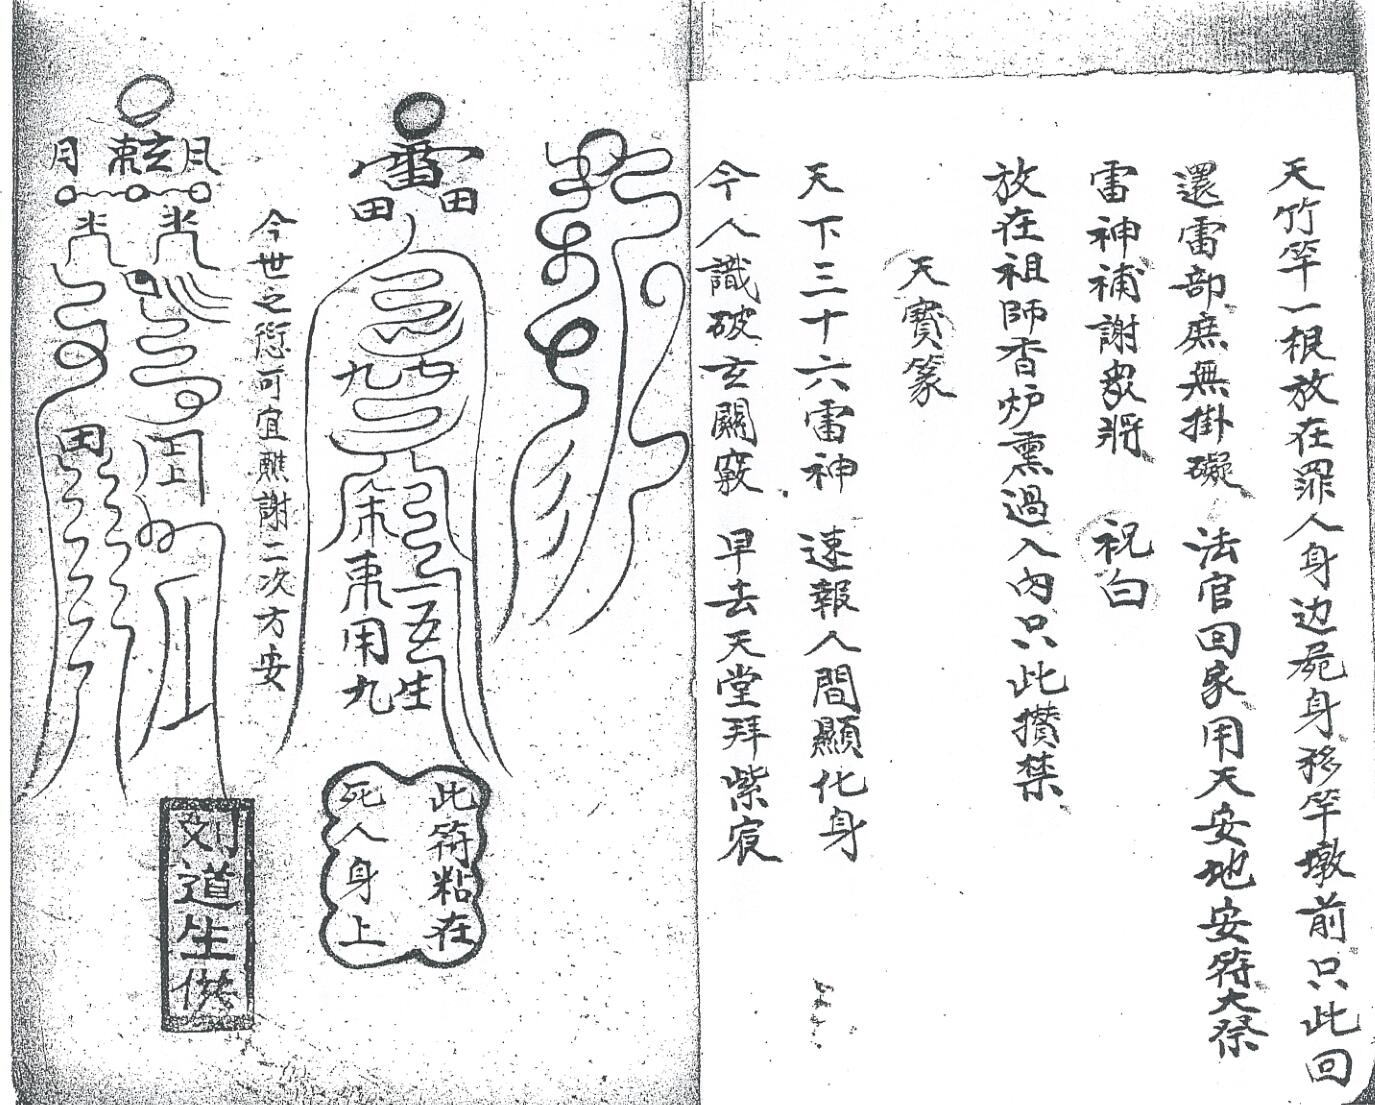 天竹竿一根放在罪人身边屍身移竿墩前只此回
還雷部庶無掛礙　法官回家用天安地安符大祭
雷神補謝衆將　祝白
放在祖師香炉熏過入內只此攢禁
天寶篆
天下三十六雷神　速報人間顯化身
今人識破玄關竅　早去天堂拜紫宸
雷
田 田
七 九
一五生
東用九
此符粘在
死人身上
今世之愆可宜醮謝二次方安
月 玄 月
田
刘道生供